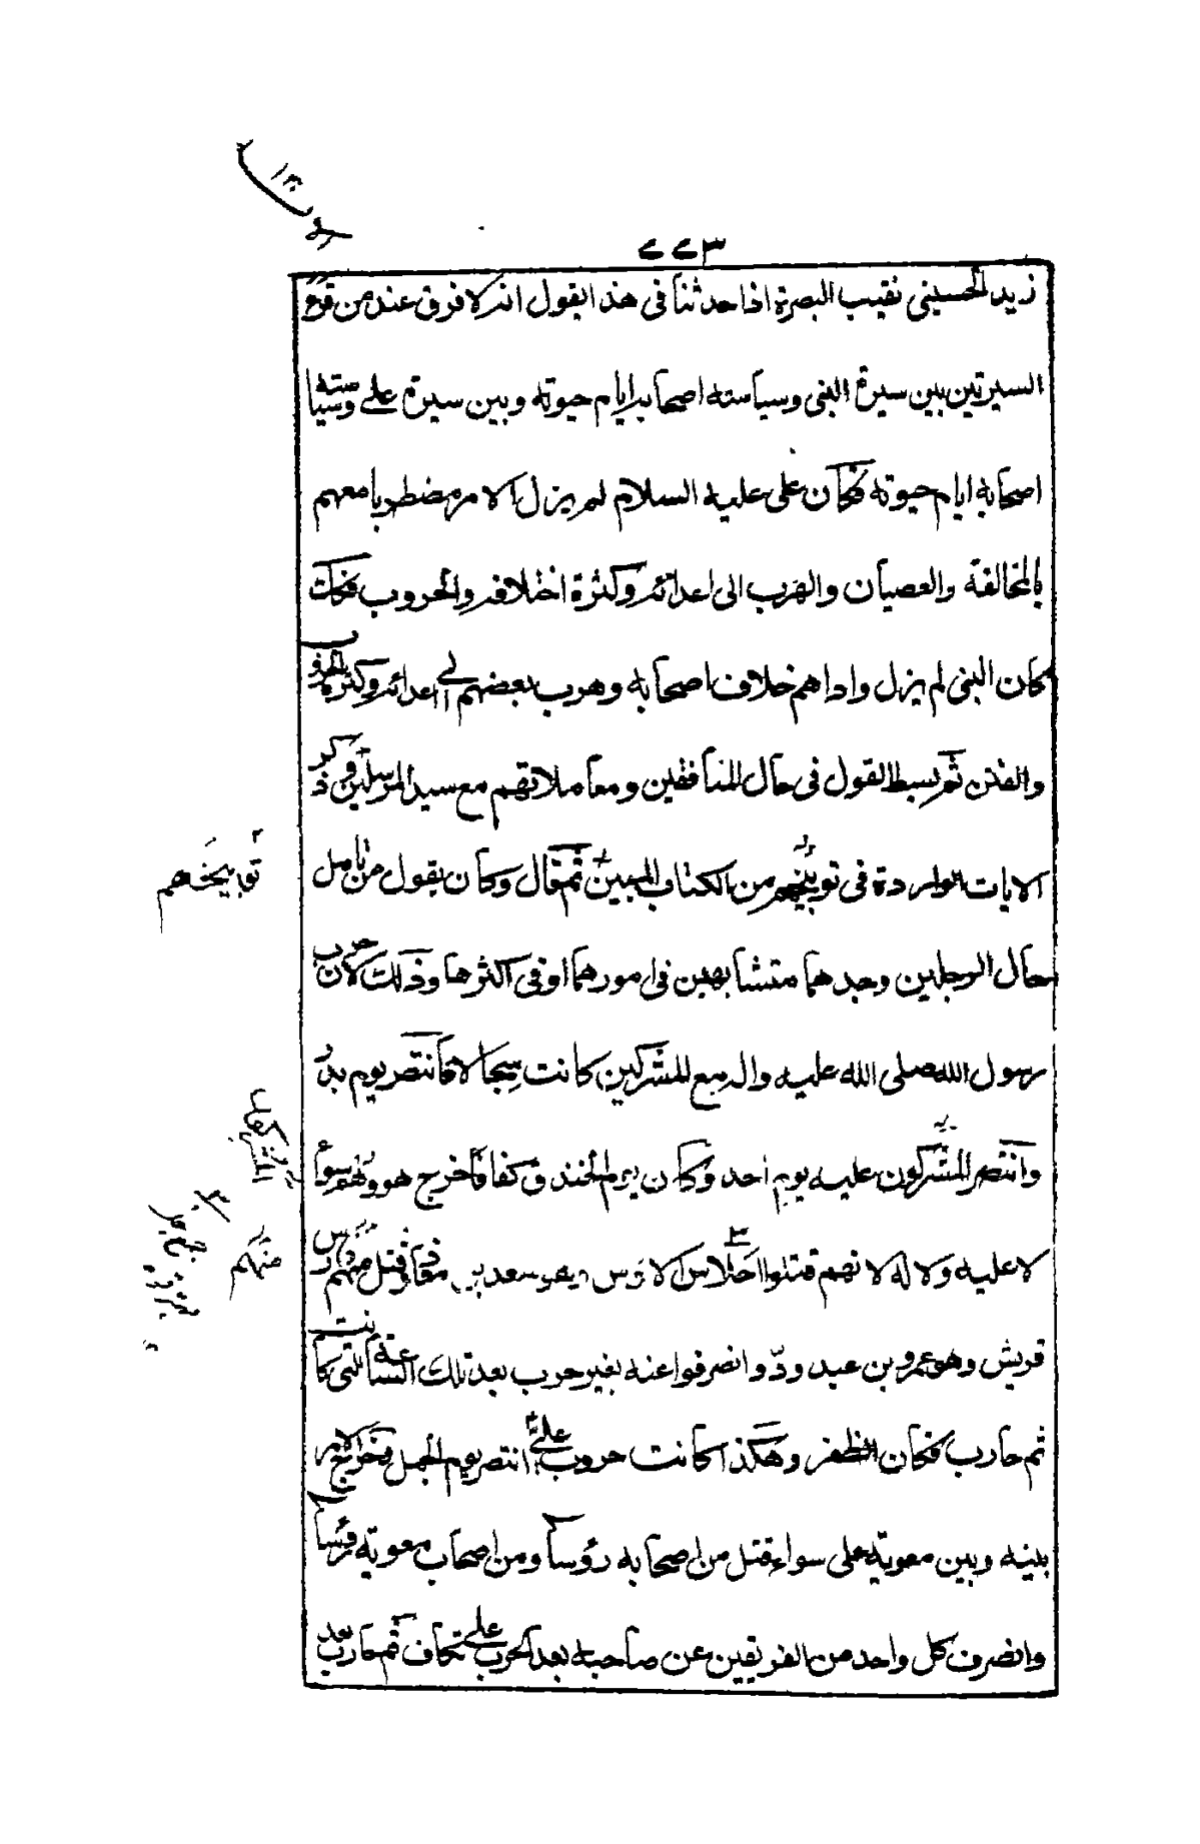 ٧٧٣
زيد الحسيني نقيب البصرة اذا حدثنا في هذا يقول انه لا فرق عند من قرء
السيرتين بين سيرة النبي وسياسته اصحابه ايام حيوته وبين سيرة علي وسياسته
اصحابه ايام حيوته فكان علي عليه السلام لم يزل الامر مضطربا معهم
بالمخالفة والعصيان والهرب الى اعدائه وكثرة اختلافه والحروب فكك
كان النبي لم يزل واداهم خلاف اصحابه وهرب بعضهم الى اعدائه وكثرة الحروب
والفتن ثم بسط القول في حال المنافقين ومعاملاتهم مع سيد المرسلين وذكر
الايات الواردة في توبيخهم من الكتاب المبين ثم قال وكان يقول من تامل
توبيخهم
حال الرجلين وجدهما متشابهين في امورهما او في اكثرها وذلك لان حرب
رسول الله صلى الله عليه واله مع المشركين كانت سجالا فانتصر يوم بدر
وانتصر المشركون عليه يوم احد وكان يوم الخندق كفافا خرج هو وهم سواء
لا عليه ولا له لانهم قتلوا الاوس وهو سعد بن معاذ وقتل منهم فارس
منهم
قريش وهو عمرو بن عبد ودّ وانصرفوا عنه بغير حرب بعد تلك الساعة التي كانت
ثم حارب فكان الظفر وهكذا كانت حروب علي انتصر يوم الجمل وخرج الامر
بينه وبين معوية على سواء قتل من اصحابه رؤسا ومن اصحاب معوية رؤسا
وانصرف كل واحد من الفريقين عن صاحبه بعد الحرب على تكاف ثم حارب بعد